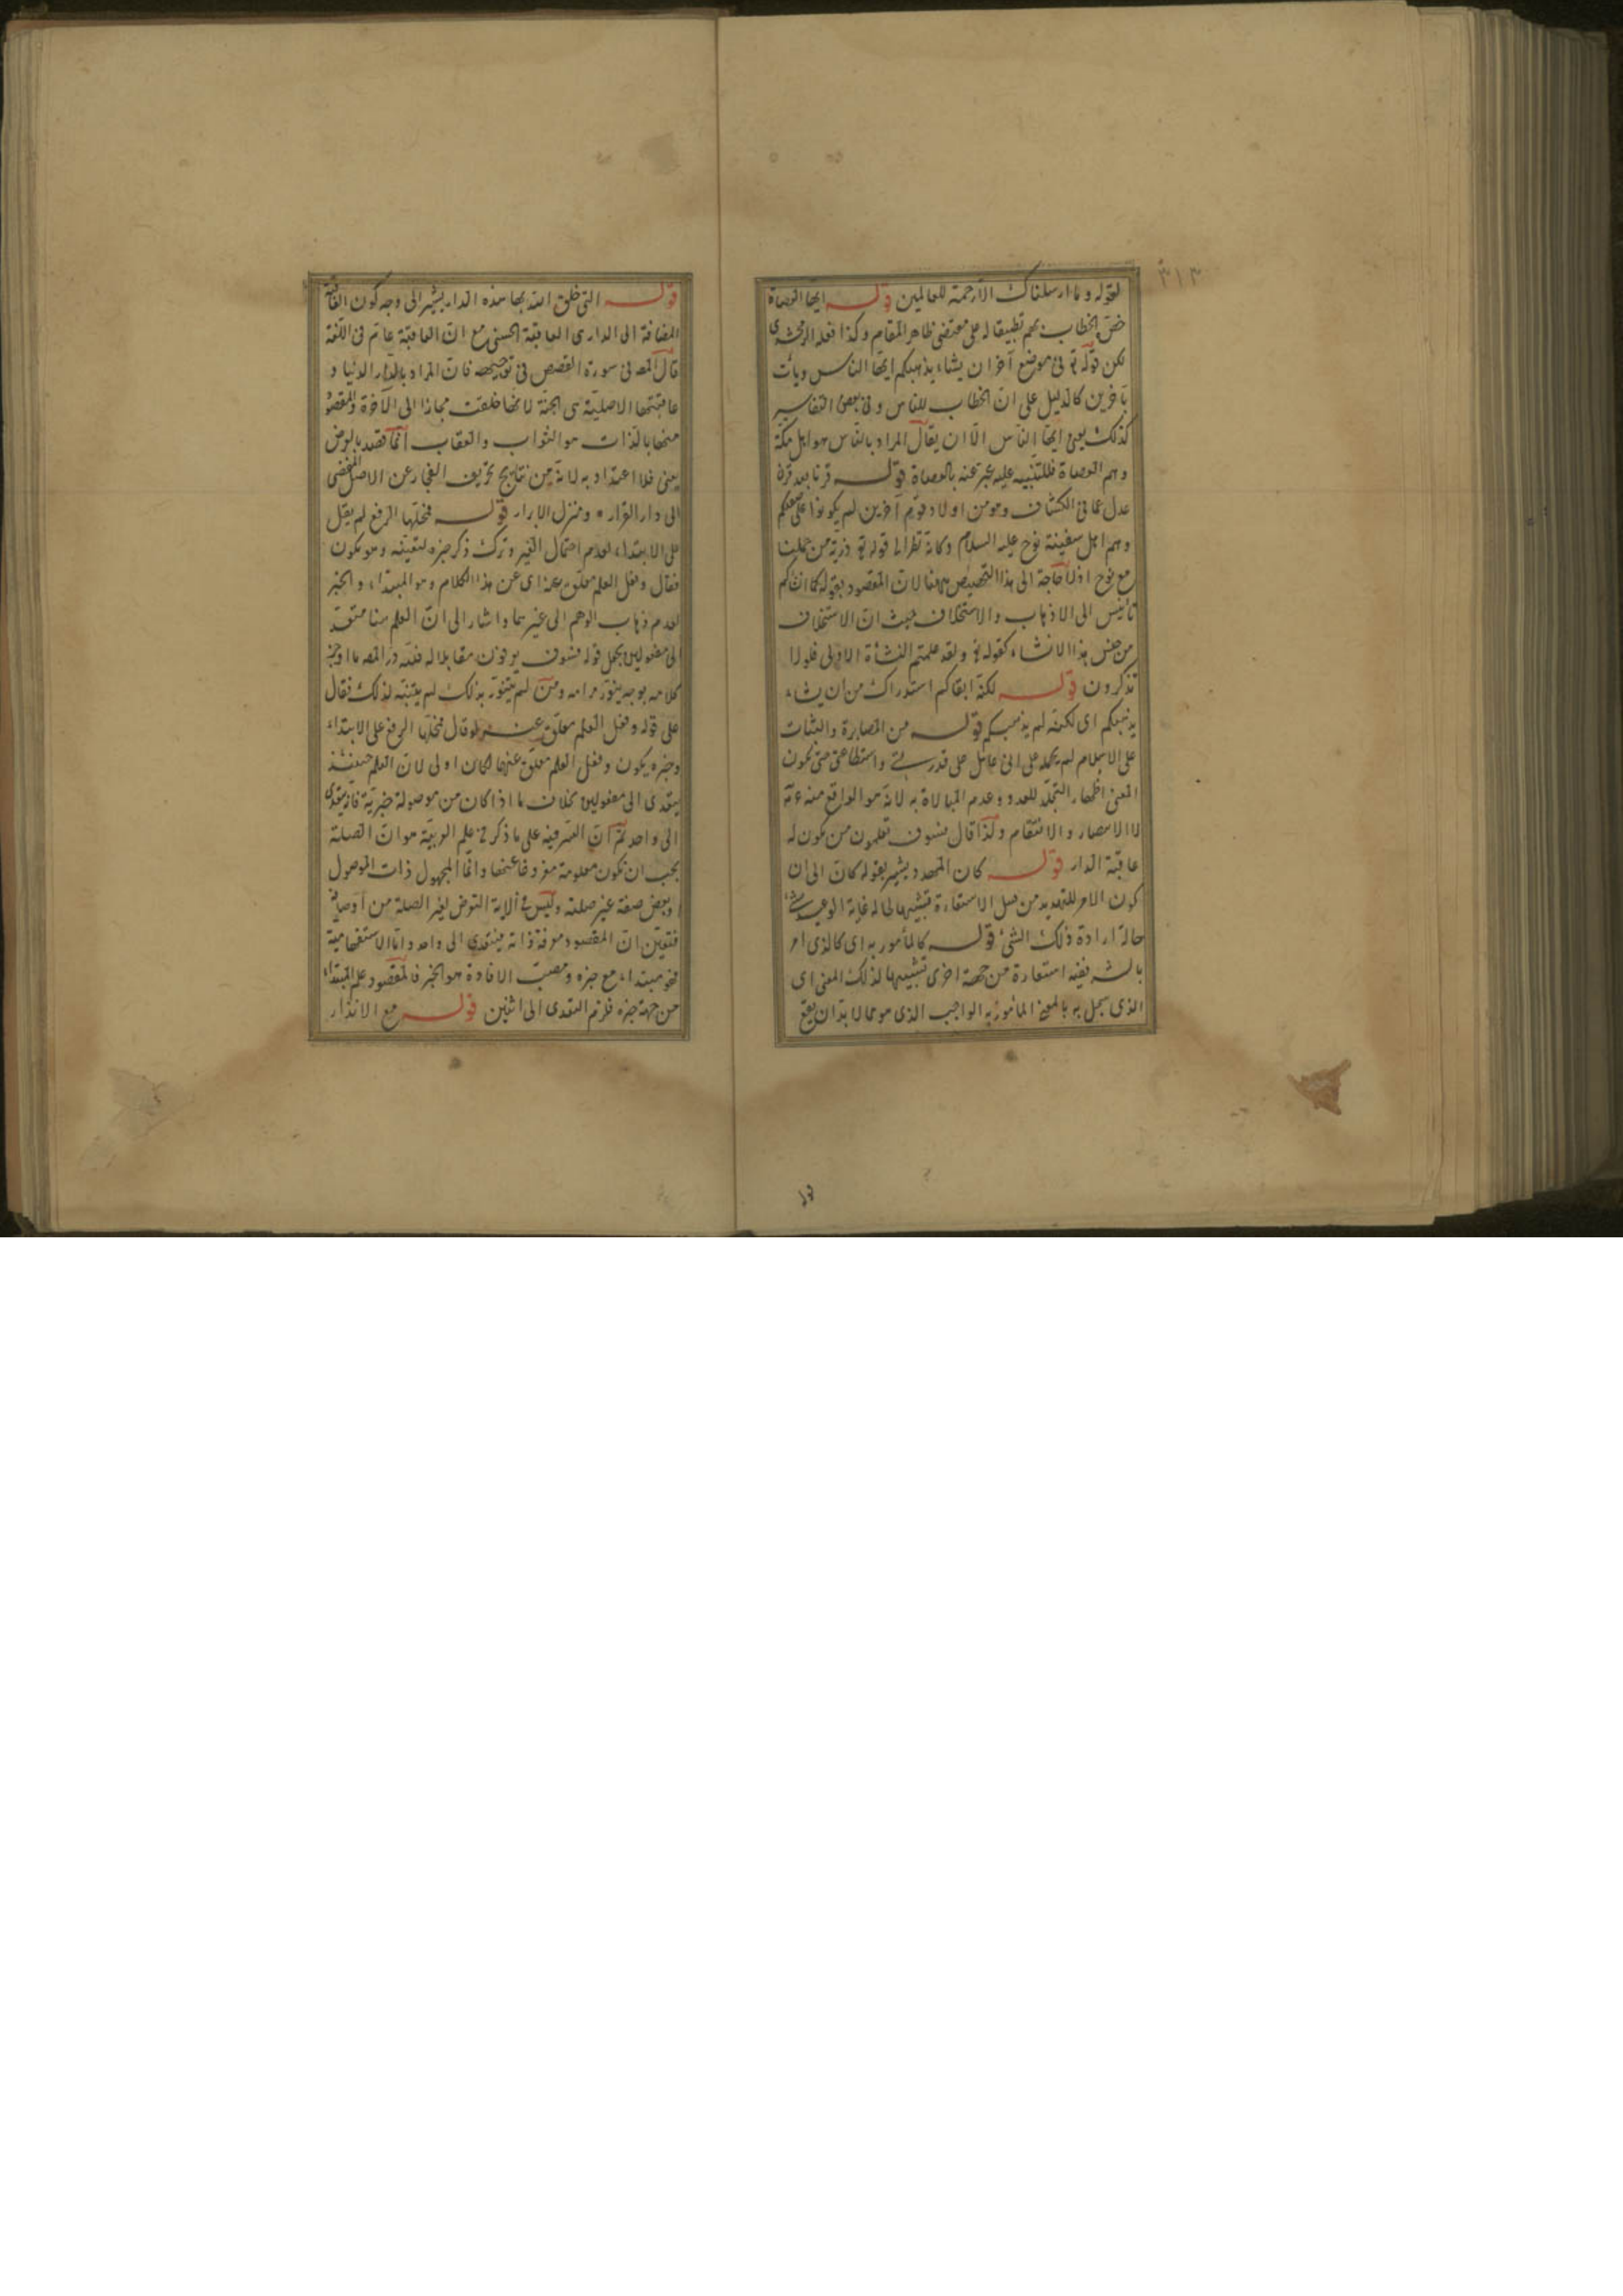 ٣١٣
لقوله وما ارسلناك الا رحمة للعالمين قوله ايها العصاة
خص الخطاب بهم تطبيقا له على مقتضى ظاهر المقام وكذا فعله الزمخشري
لكن قوله تع فى موضع آخر ان يشاء يذهبكم ايها الناس ويأت
بآخرين كالدليل على ان الخطاب للناس وفى بعض التفاسير
كذلك يعنى ايها الناس الا ان يقال المراد بالناس هو اهل مكة
وهم العصاة فللتنبيه عليه عبر عنه بالعصاة قوله قرنا بعد قرن
عدل عما فى الكشاف وهو من اولاد قوم آخرين لم يكونوا على صفتكم
وهم اهل سفينة نوح عليه السلام وكانه نظر الى قوله تع ذرية من حملنا
مع نوح اذ لا حاجة الى هذا التخصيص ههنا لان المقصود بقوله كما انشأكم
تأنيس الى الاذهاب والاستخلاف حيث ان الاستخلاف
من جنس هذا الانشاء كقوله تع ولقد علمتم النشأة الاولى فلولا
تذكرون قوله لكنه ابقاكم استدراك من ان يشاء
يذهبكم اى لكنه لم يذهبكم قوله من المصابرة والثبات
على الاسلام لم يحمله على انى عامل على قدرتى واستطاعتى حتى يكون
المعنى اظهار التجلد للعدو وعدم المبالاة به لانه هو الواقع منه عم
لا الامصار والانتقام ولذا قال فسوف تعلمون من تكون له
عاقبة الدار قوله كان المهدد يشير بقوله كان الى ان
كون الامر للتهديد من قبيل الاستعارة تشبيها لحاله غاية الوعيد
حالة ارادة ذلك الشئ قوله كالمأمور به اى كالذى امر
بالشر ففيه استعارة من جهة اخرى تشبيها لذلك المعنى اى
الذى سجل به بالمعنى المأمور به الواجب الذى هو مما لا بد ان يقع
قوله التى خلق الله بها هذه الدار يشير الى وجه كون العاقبة
المضافة الى الدار هى العاقبة الحسنى مع ان العاقبة عام فى اللغة
قال المص فى سورة القصص فى توجيهه فان المراد بالدار الدنيا و
عاقبتها الاصلية هى الجنة لانها خلقت مجازا الى الآخرة والمقصود
منها بالذات هو الثواب والعقاب انما قصد بالعرض
يعنى فلا اعتداد به لانه من نتايج تحريف الفجار عن الاصل المفضى
الى دار القرار ومنزل الابرار قوله فمحلها الرفع لم يقل
على الابتداء لعدم احتمال الغير وترك ذكر خبره لتعينه وهو تكون
فقال وفعل العلم معلق عنه اى عن هذا الكلام وهو المبتداء والخبر
لعدم ذهاب الوهم الى غيرهما واشار الى ان العلم هنا متعد
الى مفعولين بجعل قوله فسوف يعرفون مقابلا له فلله در المص ما اوجز
كلامه بوجه ينور مرامه ومن لم يتنور بذلك لم يتنبه لذلك فقال
على قوله وفعل العلم معلق عنه لو قال فمحلها الرفع على الابتداء
وخبره يكون وفعل العلم معلق عنها لكان اولى لان العلم حينئذ
يتعدى الى مفعولين بخلاف ما اذا كان من موصولة خبرية فانه يتعدى
الى واحد ثم ان السر فيه على ما ذكر فى علم العربية هو ان الصلة
يجب ان تكون معلومة مفروغا عنها وانما المجهول ذات الموصول
وبعض صفة غير صلته وليس فى الآية التعرض لغير الصلة من اوصافه
فتعين ان المقصود معرفة ذاته فيتعدى الى واحد واما الاستفهامية
فهو مبتداء مع خبره ومصب الافادة هو الخبر فالمقصود علم المبتداء
من جهة خبره فلزم التعدى الى اثنين قوله مع الانذار